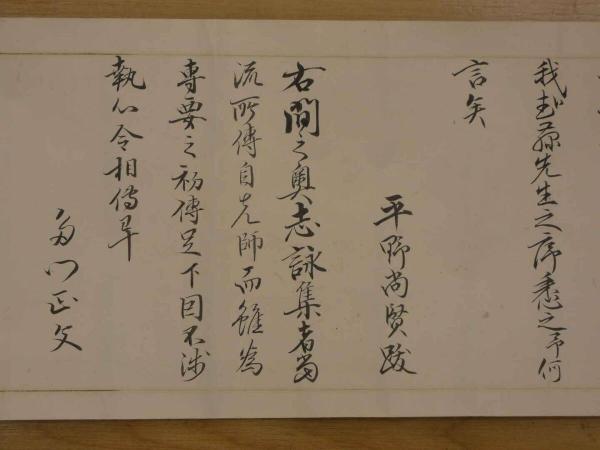 我先生之序悉之予何
言矣
平野尚賢跋
右間之奥志詠集者當
流所傳自先師而雖為
專要之初傳足下因不淺
執心令相傳畢
多門正文